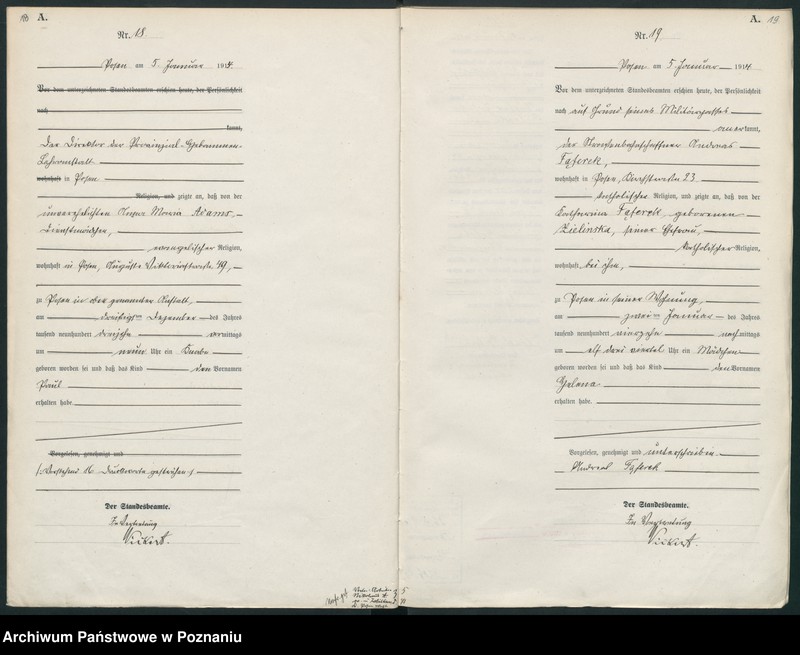 18 A.
Nr. 18
Posen am 5. Januar 1914.
Vor dem unterzeichneten Standesbeamten erschien heute, der Persönlichkeit
nach
kannt,
Der Direktor der Provinzial-Hebammen-
Lehranstalt
wohnhaft in Posen
Religion, und zeigte an, daß von der
unverehelichten Maria Adams,
Dienstmädchen,
evangelischer Religion,
wohnhaft in Posen, Augusta Viktoriastraße 49,
zu Posen in der genannten Anstalt,
am Dezember des Jahres
tausend neunhundert dreizehn vormittags
um neun Uhr ein Knabe
geboren worden sei und daß das Kind den Vornamen
Paul
erhalten habe.
Vorgelesen, genehmigt und
Vorstehend 16 Druckworte gestrichen
Der Standesbeamte.
In Vertretung
A. 19
Nr. 19
Posen am 5. Januar 1914
Vor dem unterzeichneten Standesbeamten erschien heute, der Persönlichkeit
nach auf Grund seines Militärpasses
anerkannt,
der Straßenbahnschaffner Andreas
wohnhaft in Posen, 23
katholischer Religion, und zeigte an, daß von der
Katharina geborenen
Zielinska, seiner Ehefrau,
katholischer Religion,
wohnhaft bei ihm,
zu Posen in seiner Wohnung,
am zweiten Januar des Jahres
tausend neunhundert vierzehn nachmittags
um elf drei viertel Uhr ein Mädchen
geboren worden sei und daß das Kind den Vornamen
Helena
erhalten habe.
Vorgelesen, genehmigt und unterschrieben
Andreas
Der Standesbeamte.
In Vertretung
Archiwum Państwowe w Poznaniu